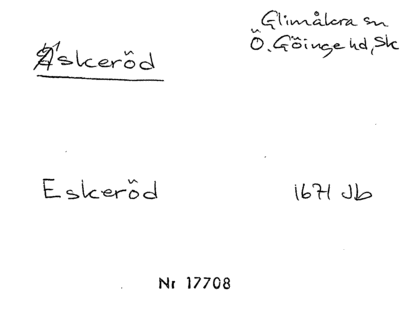 Äskeröd
Glimåkra sn
Ö. Göinge hd, Sk
Eskeröd
1671 Jb
Nr 17708